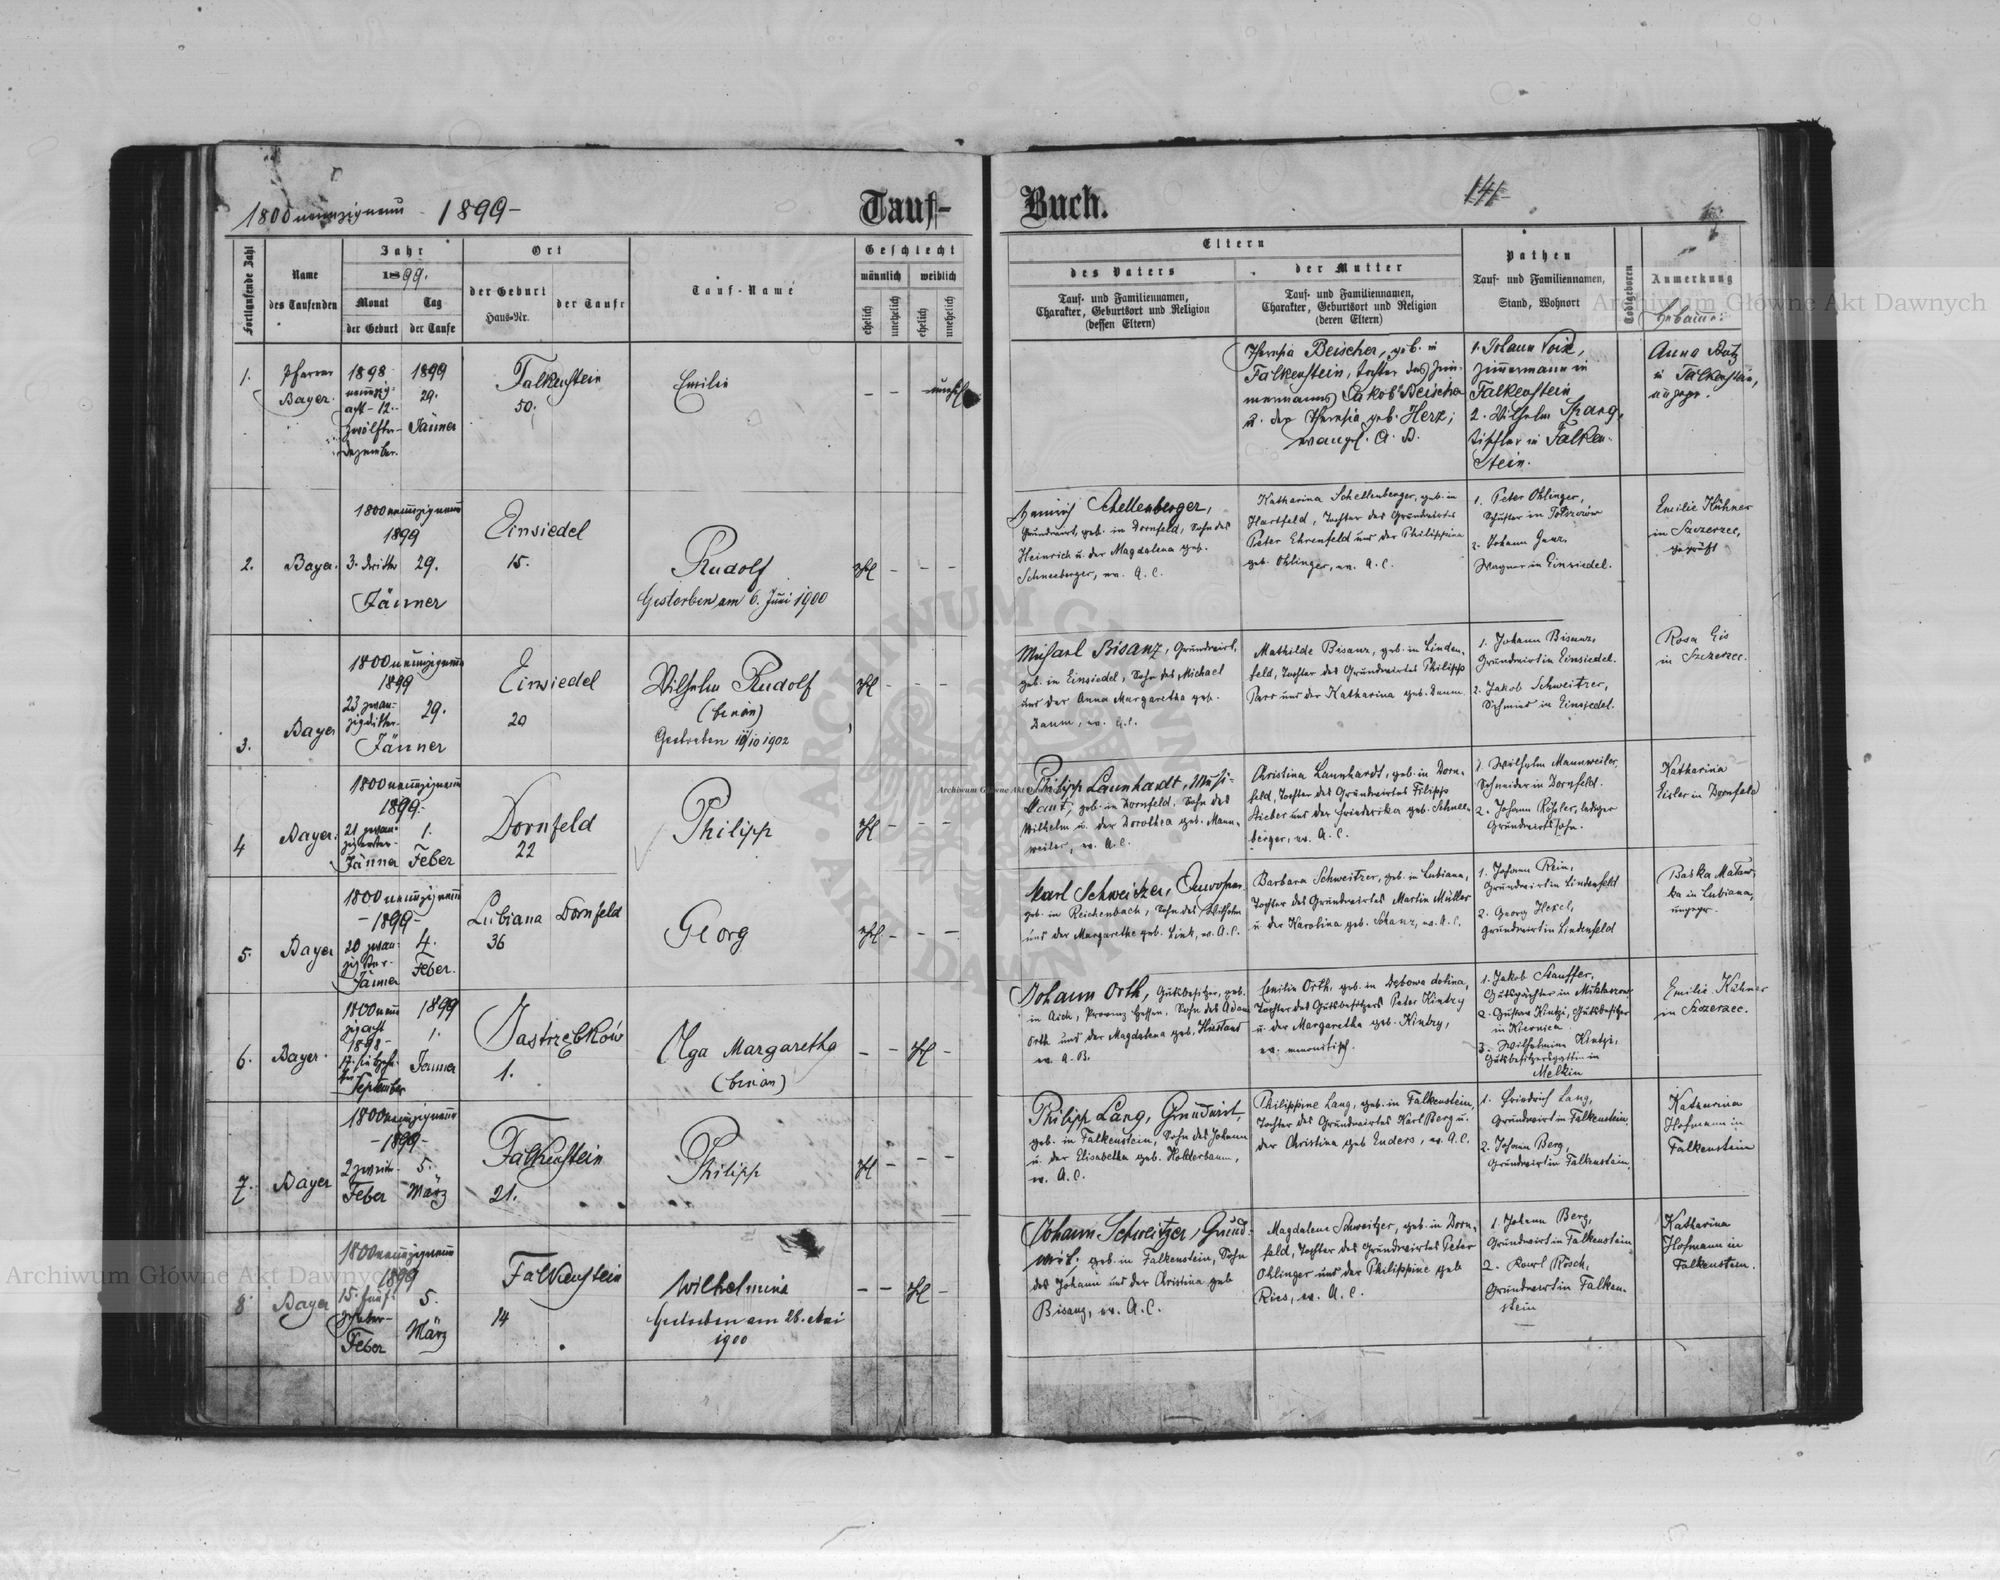 1800 neunzigneun 1899-
Tauf-
Buch.
141
Fortlaufende Zahl
Name
des Taufenden
Jahr
1899.
Monat
Tag
der Geburt
der Taufe
Ort
der Geburt
Haus-Nr.
der Taufe
Tauf-Name
Geschlecht
männlich
weiblich
ehelich
unehelich
ehelich
unehelich
Eltern
des Vaters
Tauf- und Familiennamen,
Charakter, Geburtsort und Religion
(dessen Eltern)
der Mutter
Tauf- und Familiennamen,
Charakter, Geburtsort und Religion
(deren Eltern)
Pathen
Tauf- und Familiennamen,
Stand, Wohnort
Todtgeboren
Anmerkung
Hebamme:
1.
Pfarrer
Bayer.
1898
neunzig-
acht - 12.
zwölfter-
Dezember.
1899
29.
Jänner
Falkenstein
50.
Emilie
- -
Theresia Beischer, geb. in
Falkenstein, Tochter des Zim-
mermanns Jakob Beischer
u. der Theresia geb. Herz;
evangl. A. B.
1. Johann
Zimmermann in
Falkenstein
2. Wilhelm
Tischler in Falken-
stein.
Anna
in Falkenstein,
2.
Bayer.
1800 neunzigneun
1899
3. dritter 29.
Jänner
Einsiedel
15.
Rudolf
Gestorben am 6. Juni 1900
- - -
Heinrich Schellenberger,
Grundwirt, geb. in Dornfeld, Sohn des
Heinrich u. der Magdalena geb.
Schneeberger, ev. A. C.
Katharina Schellenberger, geb. in
Hartfeld, Tochter des Grundwirtes
Peter Ehrenfeld und der Philippina
geb. Ohlinger, ev. A. C.
1. Peter Ohlinger,
Schuster in
2. Johann
Wagner in Einsiedel.
Emilie Kühner
in Szczerzec,
geprüft
3.
Bayer
1800 neunzigneun
1899
23 zwan-
zigdritter 29.
Jänner
Einsiedel
20
Wilhelm Rudolf
(binon)
Gestorben 11/10 1902
- - -
Michael Bisanz, Grundwirt,
geb. in Einsiedel, Sohn des Michael
und der Anna Margaretha geb.
Daum, ev. A. C.
Mathilde Bisanz, geb. in Linden-
feld, Tochter des Grundwirtes Philipp
Parr und der Katharina geb. Daum.
1. Johann Bisanz,
Grundwirt in Einsiedel.
2. Jakob Schweitzer,
Schmied in Einsiedel.
Rosa Eis
in Szczerzec.
4
Bayer.
1800 neunzigneun
1899.
21 zwan-
zigerster-
Jänner
1.
Feber
Dornfeld
22
Philipp
- - -
Philipp Launhardt, Musi-
kant, geb. in Dornfeld, Sohn des
Wilhelm u. der Dorothea geb. Mann-
weiler, ev. A. C.
Christina Launhardt, geb. in Dorn-
feld, Tochter des Grundwirtes Filipp
Stieber und der Friederika geb. Schnee-
berger, ev. A. C.
1. Wilhelm Mannweiler,
Schneider in Dornfeld.
2. Johann Köhler, lediger
Grundwirtssohn.
Katharina
Eisler in Dornfeld
5.
Bayer
1800 neunzigneun
- 1899 -
20 zwan-
zigster-
Jänner
4.
Feber.
Lubiana
36
Dornfeld
Georg
- - -
Karl Schweitzer,
geb. in Reichenbach, Sohn des Wilhelm
und der Margarethe geb. Link, ev. A. C.
Barbara Schweitzer, geb. in Lubiana,
Tochter des Grundwirtes Martin Müller
u. der Karolina geb. Schanz, ev. A. C.
1. Johann Rein,
Grundwirt in Lindenfeld
2. Georg Hexel,
Grundwirt in Lindenfeld
Baśka
in Lubiana,
ungepr.
6.
Bayer.
1800 neun
zigacht
1898 -
17. siebzehn-
ter
September
1899
1.
Jänner
Jastrzębków
1.
Olga Margaretha
(binon)
- - -
Johann Orth, Gutsbesitzer, geb.
in Aich, Provinz Hessen, Sohn des Adam
Orth und der Magdalena geb.
ev. A. B.
Emilie Orth, geb. in Dębowa dolina,
Tochter des Gutsbesitzers Peter Kintzy
u. der Margaretha geb. Kintzy,
ev. menonitisch.
1. Jakob Stauffer,
Gutspächter in
2. Gustav Kintzi, Gutsbesitzer
in Kiernica
3. Wilhelmine Kintzi,
Gutsbesitzersgattin in
Melkin
Emilie Kühner
in Szczerzec.
7.
Bayer
1800 neunzigneun
- 1899 -
2 zweiter-
Feber
5.
März
Falkenstein
21.
Philipp
- - -
Philipp Lang, Grundwirt,
geb. in Falkenstein, Sohn des Johann
u. der Elisabetha geb. Holderbaum,
ev. A. C.
Philippine Lang, geb. in Falkenstein,
Tochter des Grundwirtes Karl Berg u.
der Christina geb Enders, ev. A. C.
1. Friedrich Lang,
Grundwirt in Falkenstein
2. Johann Berg,
Grundwirt in Falkenstein.
Katharina
Hofmann in
Falkenstein
8.
Bayer
1800 neunzigneun
1899
15. fünf-
zehnter-
Feber
5.
März
Falkenstein
14
Wilhelmine
Gestorben am 28. Mai
1900
- - -
Johann Schweitzer, Grund-
wirt, geb. in Falkenstein, Sohn
des Johann und der Christina geb
Bisanz, ev. A. C.
Magdalena Schweitzer, geb. in Dorn-
feld, Tochter des Grundwirtes Peter
Ohlinger und der Philippine geb
Ries, ev. A. C.
1. Johann Berg,
Grundwirt in Falkenstein
2. Karl Rösch,
Grundwirt in Falken-
stein
Katharina
Hofmann in
Falkenstein.
Archiwum Główne Akt Dawnych
Archiwum Główne Akt Dawnych
Archiwum Główne Akt Dawnych
ARCHIWUM GŁÓWNE AKT DAWNYCH